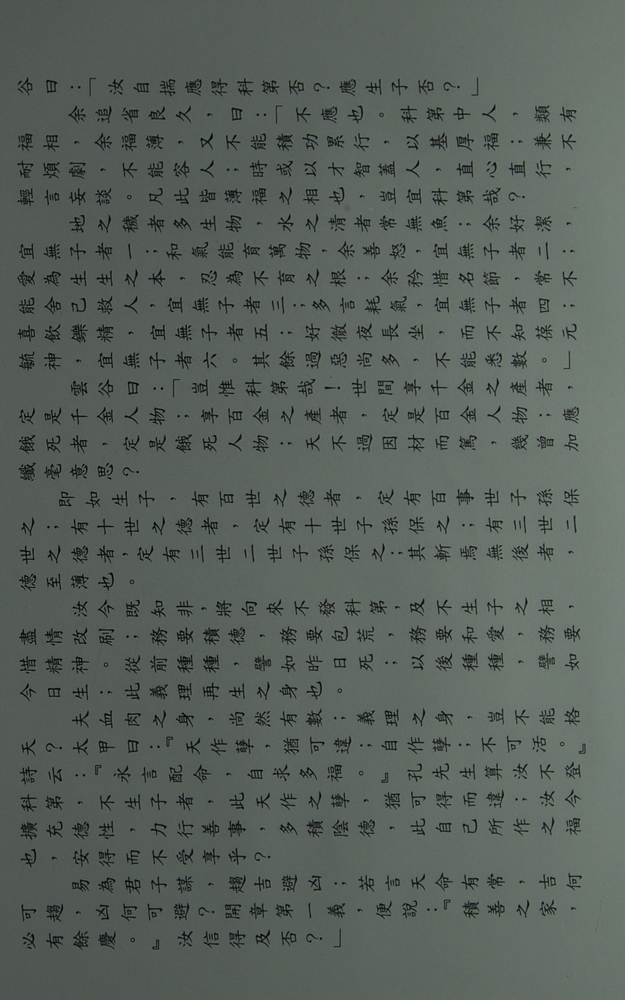 谷曰：「汝自揣應得科第否？應生子否？」
余追省良久，曰：「不應也。科第中人，類有
福相，余福薄，又不能積功累行，以基厚福；兼不
耐煩劇，不能容人；時或以才智蓋人，直心直行，
輕言妄談。凡此皆薄福之相也，豈宜科第哉？
地之穢者多生物，水之清者常無魚；余好潔，
宜無子者一；和氣能育萬物，余善怒，宜無子者二；
愛為生生之本，忍為不育之根；余矜惜名節，常不
能舍己救人，宜無子者三；多言耗氣，宜無子者四；
喜飲鑠精，宜無子者五；好徹夜長坐，而不知葆元
毓神，宜無子者六。其餘過惡尚多，不能悉數。」
雲谷曰：「豈惟科第哉！世間享千金之產者，
定是千金人物；享百金之產者，定是百金人物；應
餓死者，定是餓死人物；天不過因材而篤，幾曾加
纖毫意思？
即如生子，有百世之德者，定有百事世子孫保
之；有十世之德者，定有十世子孫保之；有三世二
世之德者，定有三世二世子孫保之；其斬焉無後者，
德至薄也。
汝今既知非，將向來不發科第，及不生子之相，
盡情改刷；務要積德，務要包荒，務要和愛，務要
惜精神。從前種種，譬如昨日死；以後種種，譬如
今日生；此義理再生之身也。
夫血肉之身，尚然有數；義理之身，豈不能格
天？太甲曰：『天作孽，猶可違；自作孽；不可活。』
詩云：『永言配命，自求多福。』孔先生算汝不登
科第，不生子者，此天作之孽，猶可得而違；汝今
擴充德性，力行善事，多積陰德，此自己所作之福
也，安得而不受享乎？
易為君子謀，趨吉避凶；若言天命有常，吉何
可趨，凶何可避？開章第一義，便說：『積善之家，
必有餘慶。』汝信得及否？」